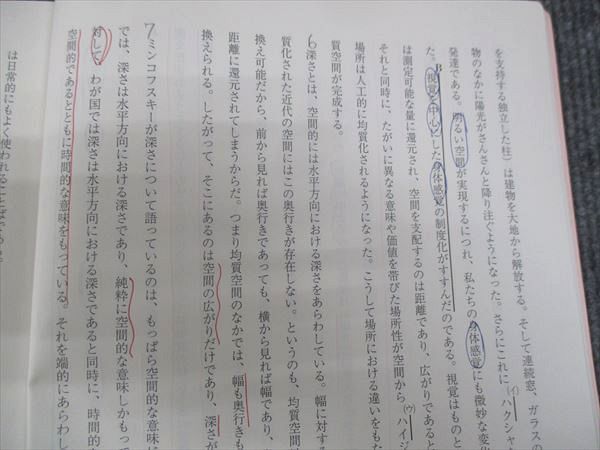 を支持する独立した柱）は建物を大地から解放する。そして連続窓、ガラスの
物のなかに陽光がさんさんと降り注ぐようになった。さらにこれに(イ)ハクシャ
発達である。明るい空間が実現するにつれ、私たちの身体感覚にも微妙な変
た。B視覚を中心とした身体感覚の制度化がすすんだのである。視覚はものと
は測定可能な量に還元され、空間を支配するのは距離であり、広がりであると
それと同時に、たがいに異なる意味や価値を帯びた場所性が空間から(ウ)ハイジ
場所は人工的に均質化されるようになった。こうして場所における違いをもた
質空間が完成する。
6深さとは、空間的には水平方向における深さをあらわしている。幅に対する
質化された近代の空間にはこの奥行きが存在しない。というのも、均質空間
換え可能だから、前から見れば奥行きであっても、横から見れば幅であり、
距離に還元されてしまうからだ。つまり均質空間のなかでは、幅も奥行きも
換えられる。したがって、そこにあるのは空間の広がりだけであり、深さが
7ミンコフスキーが深さについて語っているのは、もっぱら空間的な意味
では、深さは水平方向における深さであり、純粋に空間的な意味しかもって
対して、わが国では深さは水平方向における深さであると同時に、時間的
空間的であるとともに時間的な意味をもっている。それを端的にあらわし
は日常的にもよく使われることばである。